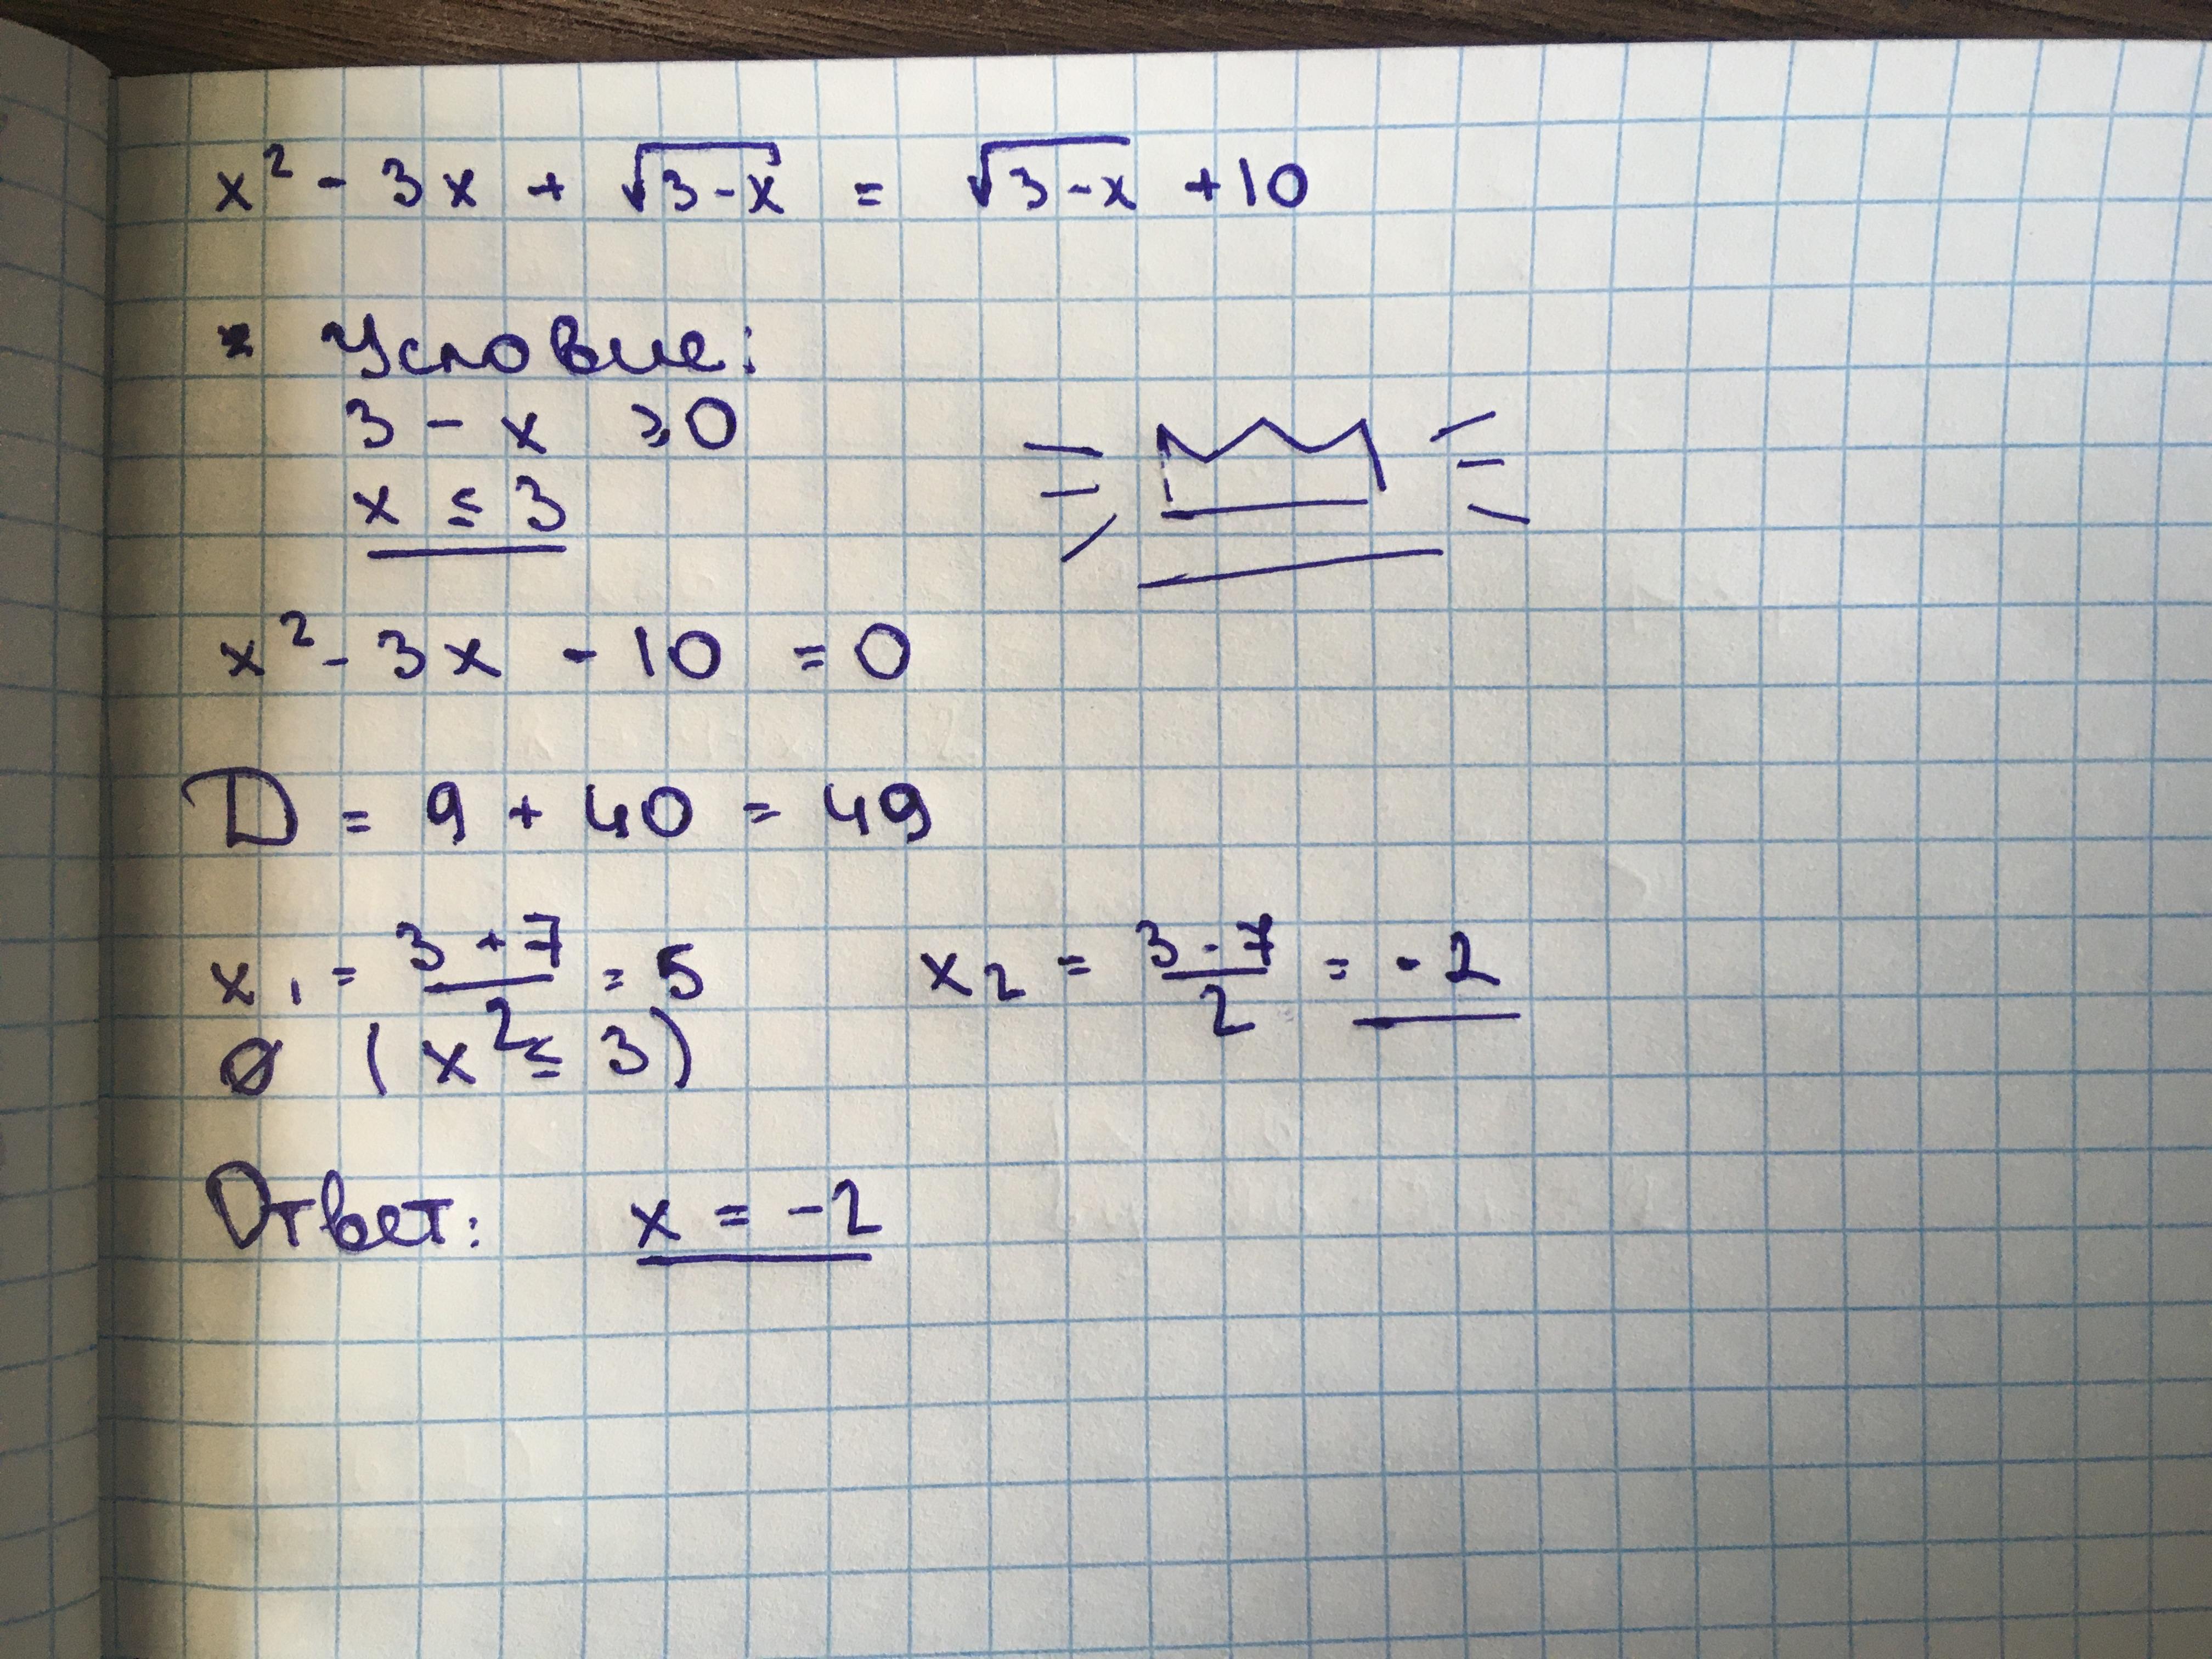 x² - 3x + √(3-x) = √(3-x) + 10
* Условие:
3 - x ≥ 0
x ≤ 3
x² - 3x - 10 = 0
D = 9 + 40 = 49
x₁ = (3+7)/2 = 5 x₂ = (3-7)/2 = -2
∅ (x ≤ 3)
Ответ: x = -2